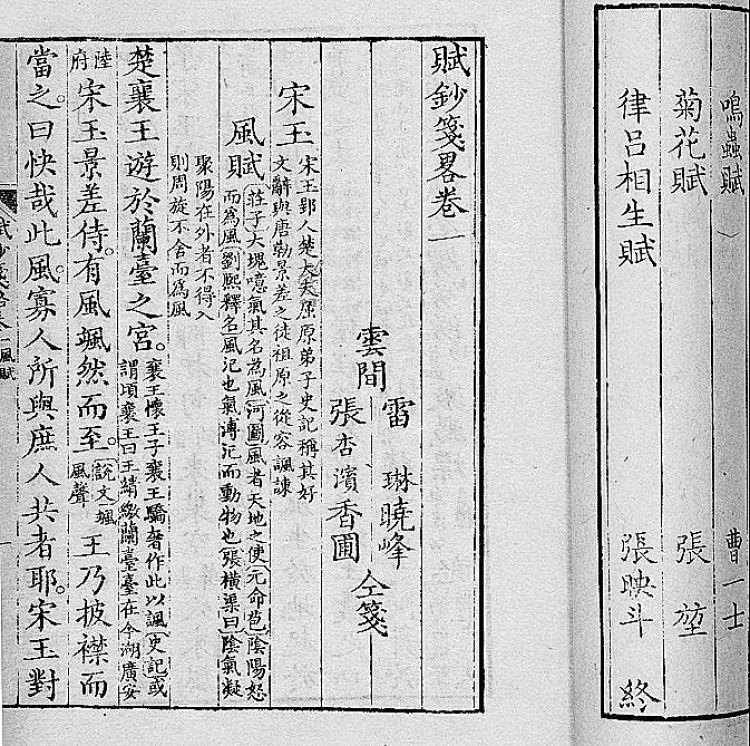 鳴蟲賦 曹一士
菊花賦 張堃
律呂相生賦 張映斗 終
賦鈔箋畧卷一
雲間 雷琳曉峰 張杏濱香圃 仝箋
宋玉 宋玉郢人楚大夫屈原弟子史記稱其好
文辭與唐勒景差之徒祖原之從容諷諫
風賦 莊子大塊噫氣其名為風河圖風者天地之使元命苞陰陽怒
而為風劉熙釋名風汜也氣溥汜而動物也張橫渠曰陰氣凝
聚陽在外者不得入
則周旋不舍而為風
楚襄王遊於蘭臺之宮。 襄王懷王子襄王驕奢作此以諷史記或
謂頃襄王曰王綪繳蘭臺臺在今湖廣安
陸
府 宋玉景差侍。有風颯然而至。 說文颯
風聲 王乃披襟而
當之。曰快哉此風。寡人所與庶人共者耶。宋玉對
風賦